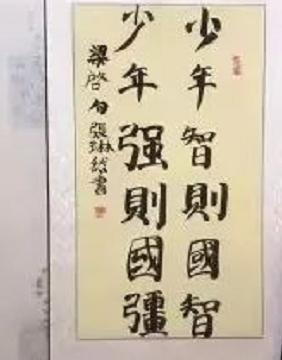 少年智則國智
少年强則國彊
梁啓句張琳書